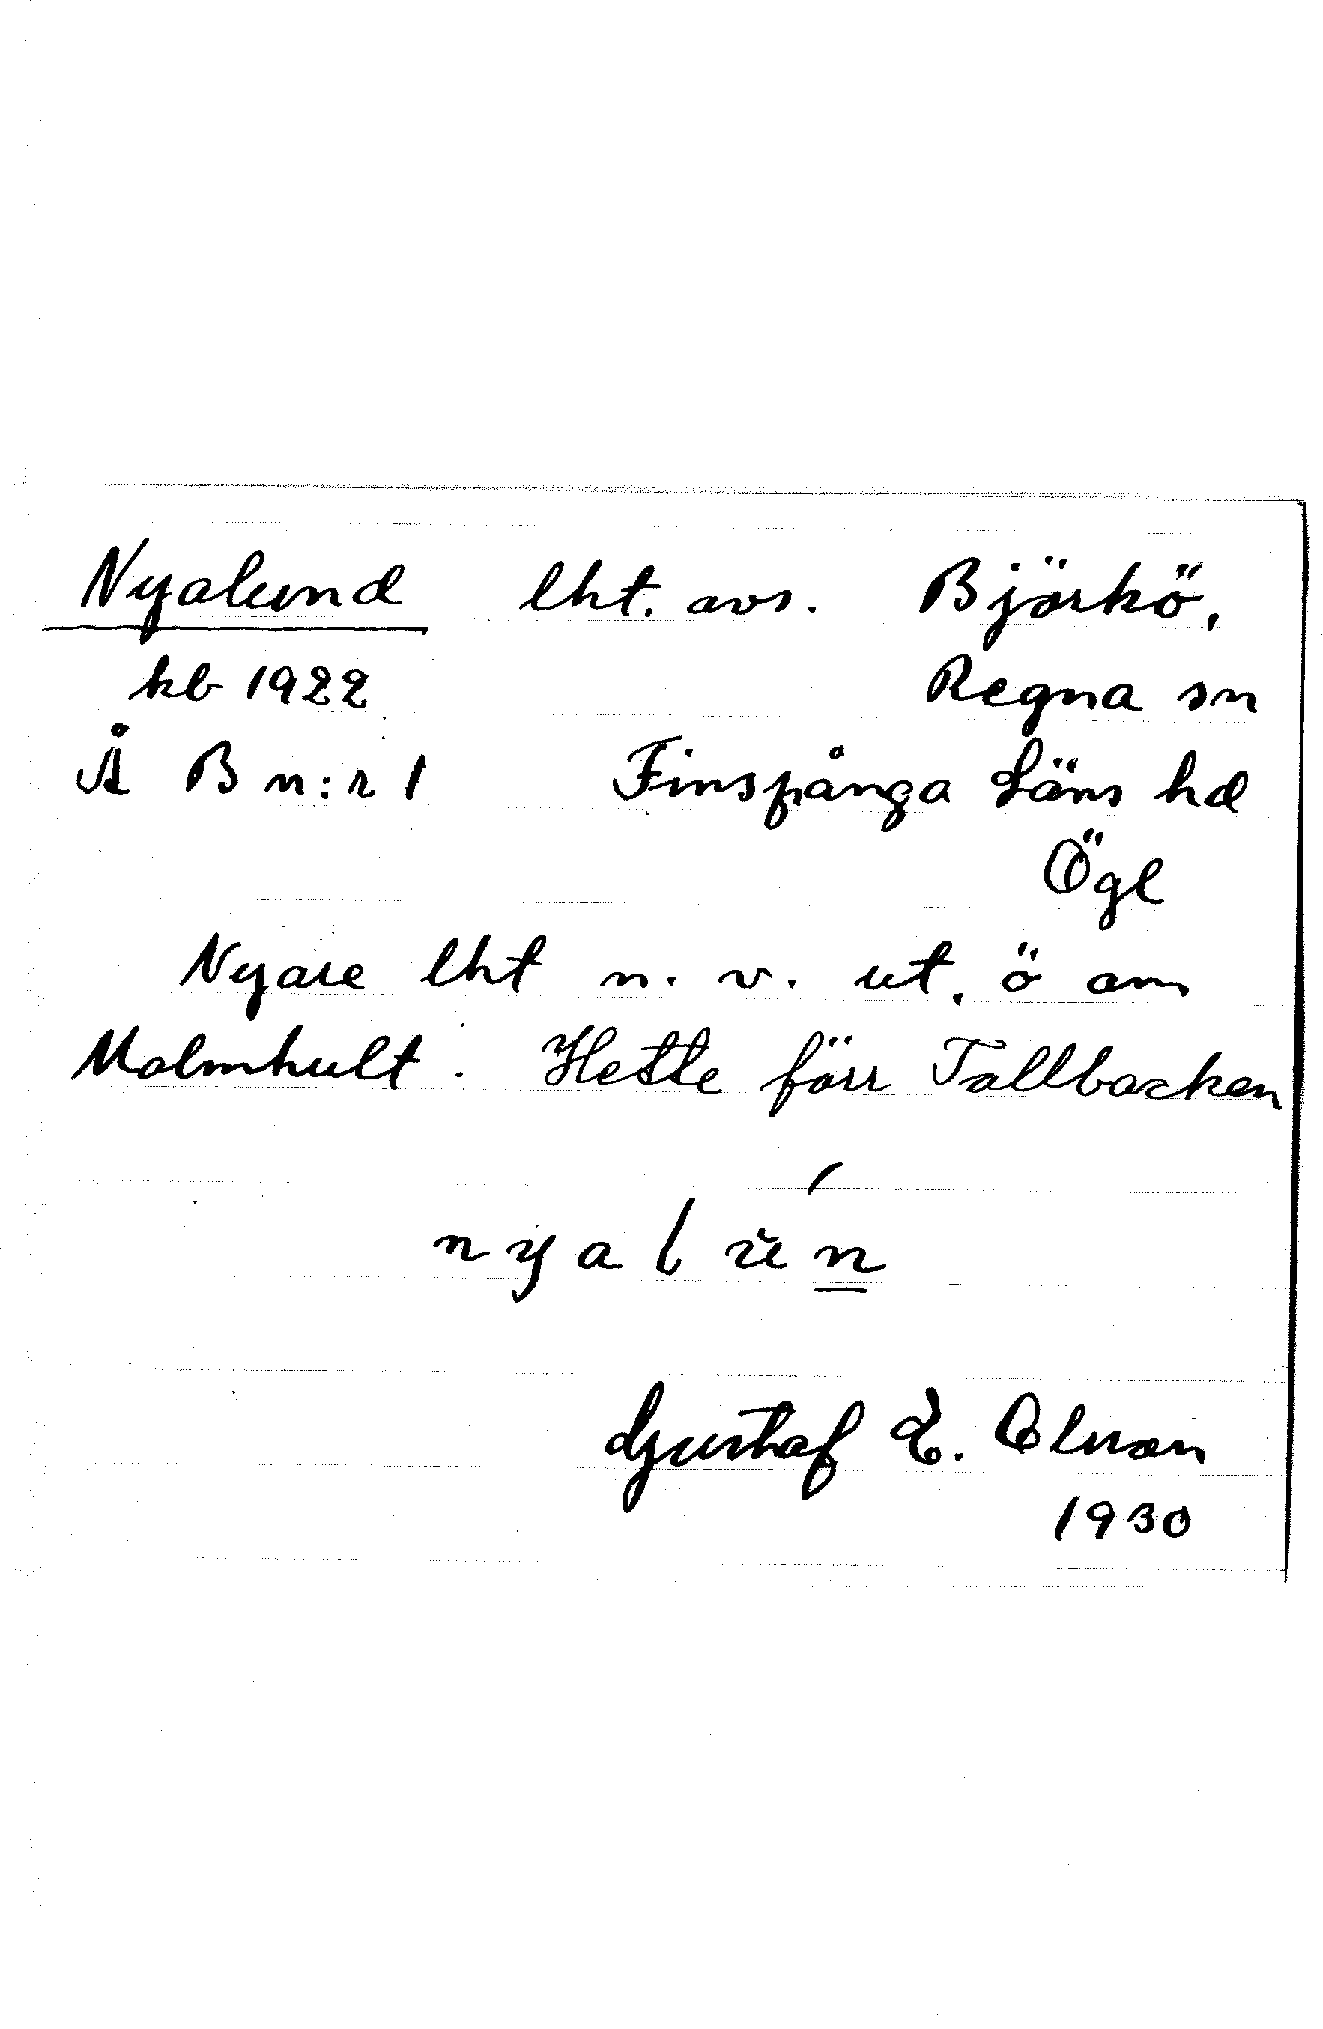 Nyalund lht. avs. Björkö,
kb 1922 Regna sn
Å B n:r 1 Finspånga Läns hd
Ögl
Nyare lht n. v. ut. ö om
Malmhult. Hette förr Tallbacken
nyalŭn
Gustaf E. Olsson
1930